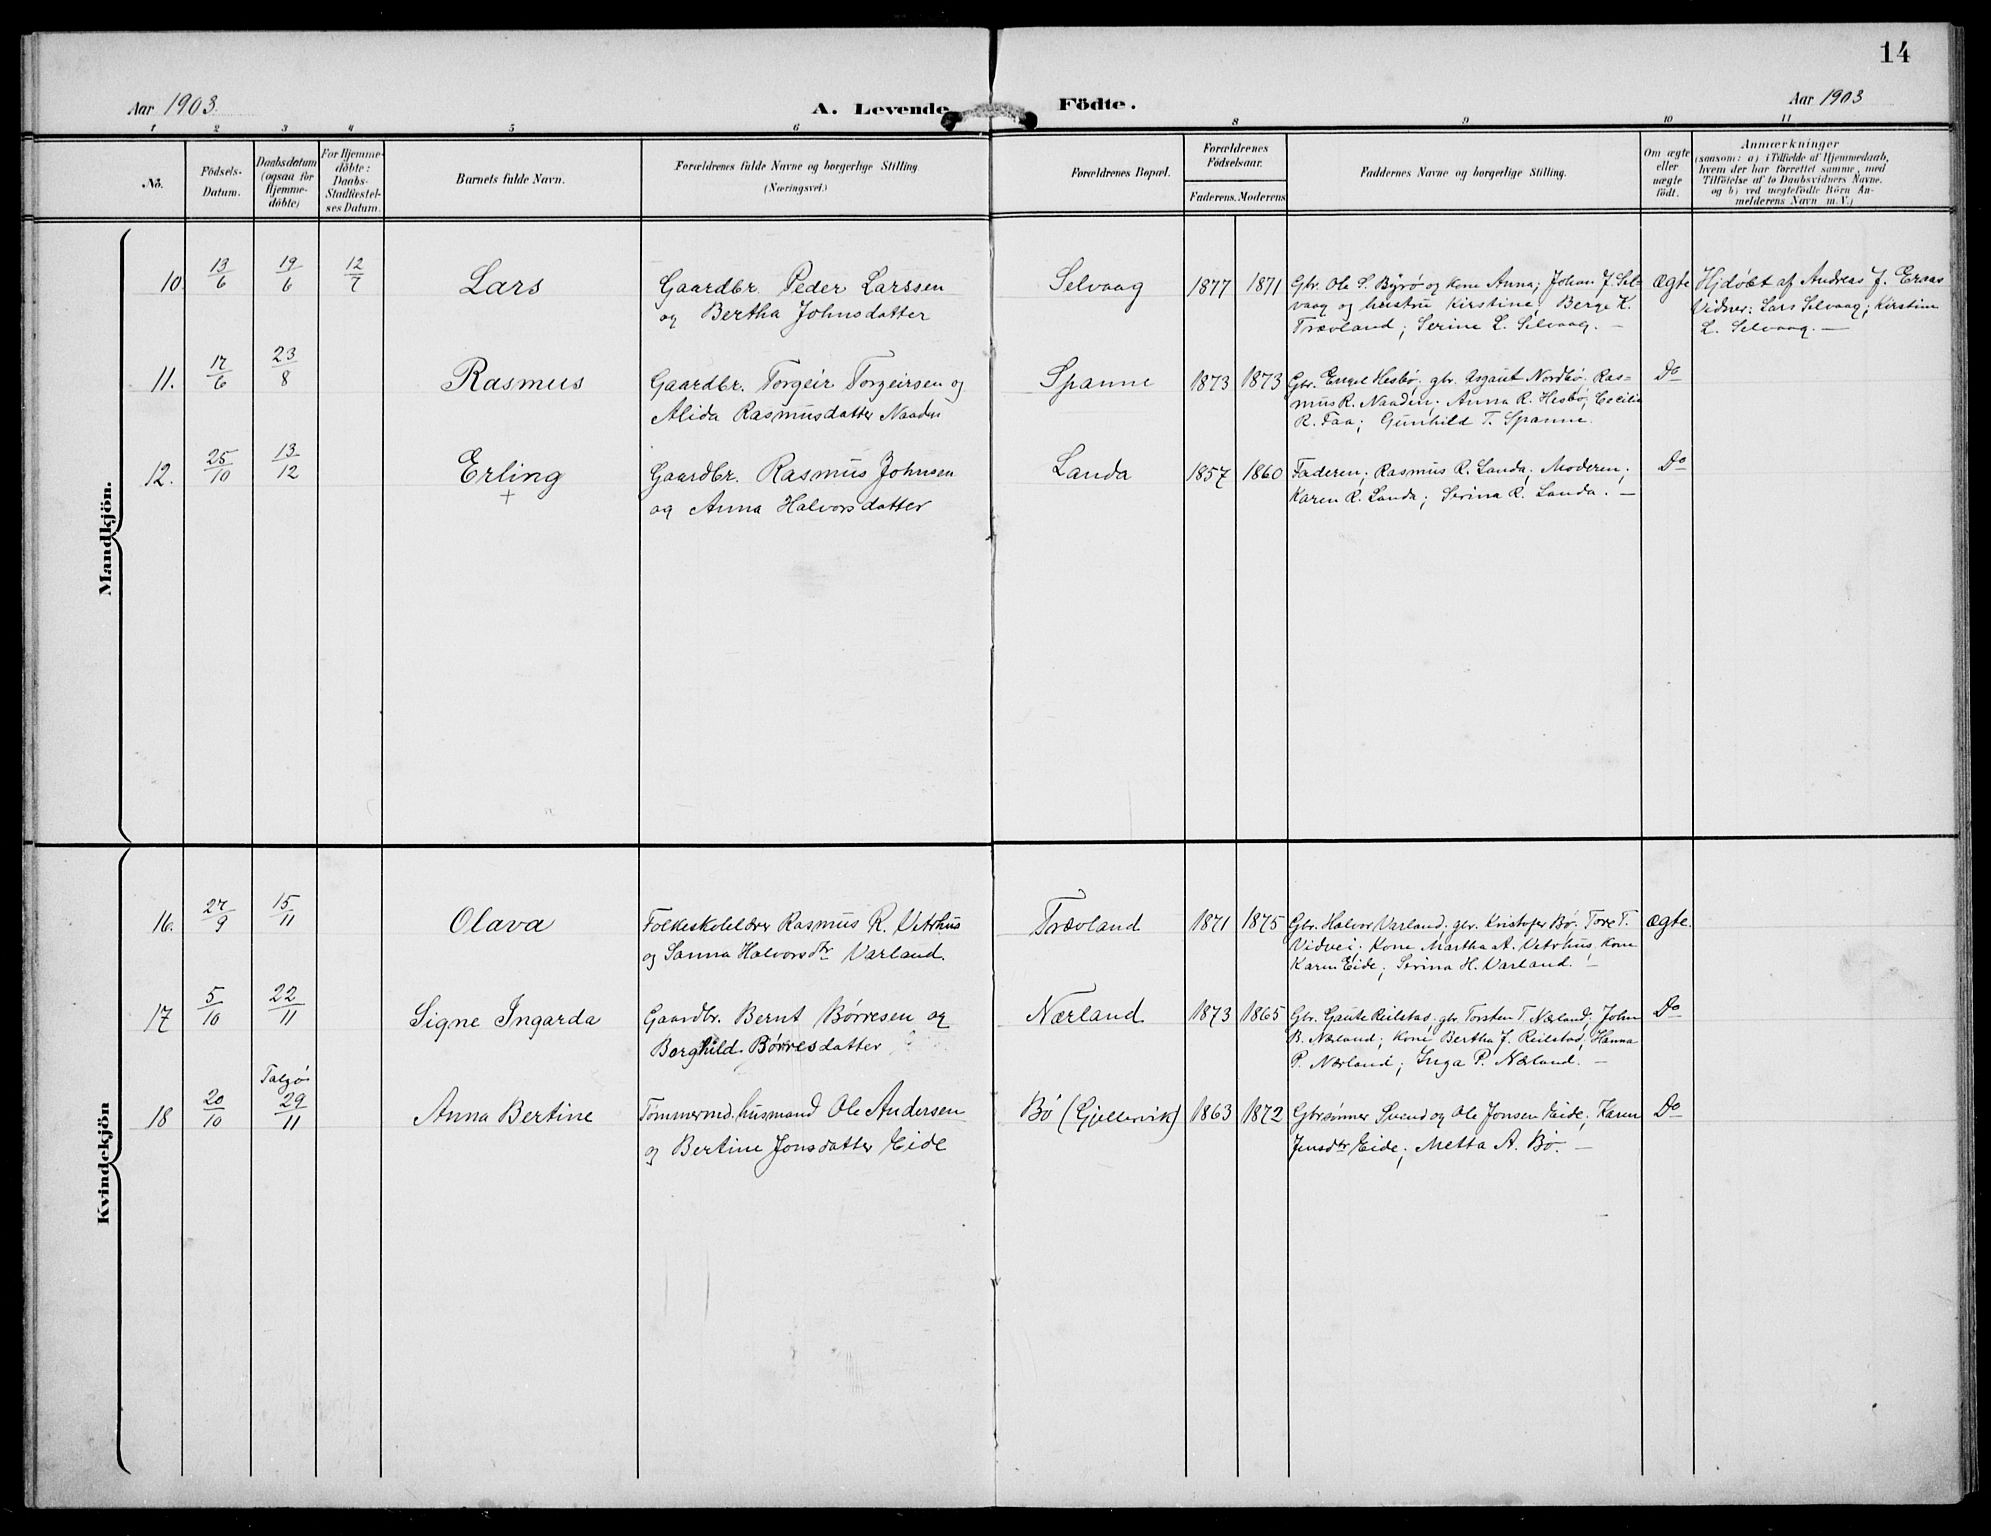 14
Aar 1903.
A. Levende Födte.
Aar 1903
1 2 3 4 5 6 8 9 10 11
No.
Födsels-
Datum.
Daabsdatum
(ogsaa för
Hjemme-
döbte)
For Hjemme-
döbte:
Daabs-
Stadfæstel-
ses Datum
Barnets fulde Navn.
Forældrenes fulde Navne og borgerlige Stilling
(Næringsvei.)
Forældrenes Bopæl.
Forældrenes
Födselsaar.
Faderens. Moderens
Faddernes Navne og borgerlige Stilling.
Om ægte
eller
uægte
födt.
Anmærkninger
(saasom: a) i Tilfælde af Hjemmedaab,
hvem der har forrettet samme, med
Tilföielse af to Daabsvidners Navne.
og b) ved uegtefödte Börn An-
melderens Navn m. V.)
Mandkjön.
10. 13/6 19/6 12/7 Lars
Gaardbr. Peder Larssen
og Bertha Johnsdatter
Selvaag 1877 1871
Gbr. Ole S. Byrø og kone Anna; Johan J. Sel-
vaag og hustru Kirstine, Berge K.
Trævland; Serine L. Selvaag. —
Ægte
Hjdøbt af Andreas J. Eraas
Vidner: Lars Selvaag; Kirstine
L. Selvaag. —
11. 17/6 23/8 Rasmus
Gaardbr. Torgeir Torgeirsen og
Alida Rasmusdatter Naaden
Spanne 1873 1873
Gbr. Engel Hesbø; gbr. Asgaut Nordbø; Ras-
mus R. Naaden; Anna R. Hesbø; Cecilie
R. Faa; Gunhild T. Spanne.
Do
12. 25/10 13/12 Erling
+
Gaardbr. Rasmus Johnsen
og Anna Halvorsdatter
Landa 1857 1860
Faderen; Rasmus R. Landa; Moderen;
Karen R. Landa; Serina R. Landa. —
Do
Kvindekjön
16. 27/9 15/11 Olava
Folkeskolelærer Rasmus R. Vetrhus
og Sanna Halvorsdtr Varland.
Trævland 1871 1875
Gbr. Halvor Varland; gbr. Kristofer Bø; Tore T.
Vidvei; Kone Martha A. Vetrhus, kone
Karen Eide; Serina H. Varland. —
Ægte.
17 5/10 22/11 Signe Ingarda
Gaardbr. Bernt Børresen og
Borghild Børresdatter
Nærland 1873 1865
Gbr. Gaute Reilstad; gbr. Torsten T. Nærland; John
B. Nærland; Kone Bertha J. Reilstad; Hanna
P. Nærland; Inga P. Nærland. —
Do
18 20/10 Talgø 29/11 Anna Bertine
Tømmermd. husmand Ole Andersen
og Bertine Jonsdatter Eide
Bø (Gjellervik) 1863 1872
Gbrsønner Svend og Ole Jonsen Eide; Karen
Jensdtr Eide; Metta A. Bø. —
Do